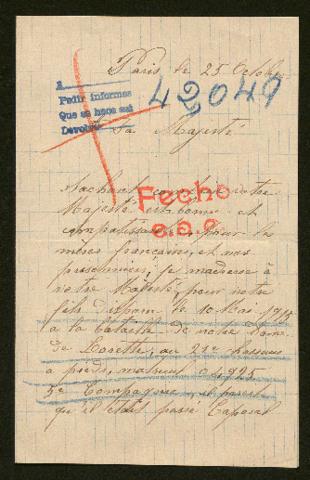 Paris le 25 Octobre
A
Pedir informes
Que se hace así
Devolver
42049
Sa Majesté
Fecho
Sachant combien votre
Majesté est bonne et
compatissante pour les
mères françaises, et nos
prisonniers, je m'adresse à
votre Majesté, pour notre
fils disparu le 10 Mai 1915
a la bataille de notre Dame
de Lorette, au 21e chasseurs
à pieds, matricul 04925
5e Compagnie, il parait
qu'il etait passé Caporal